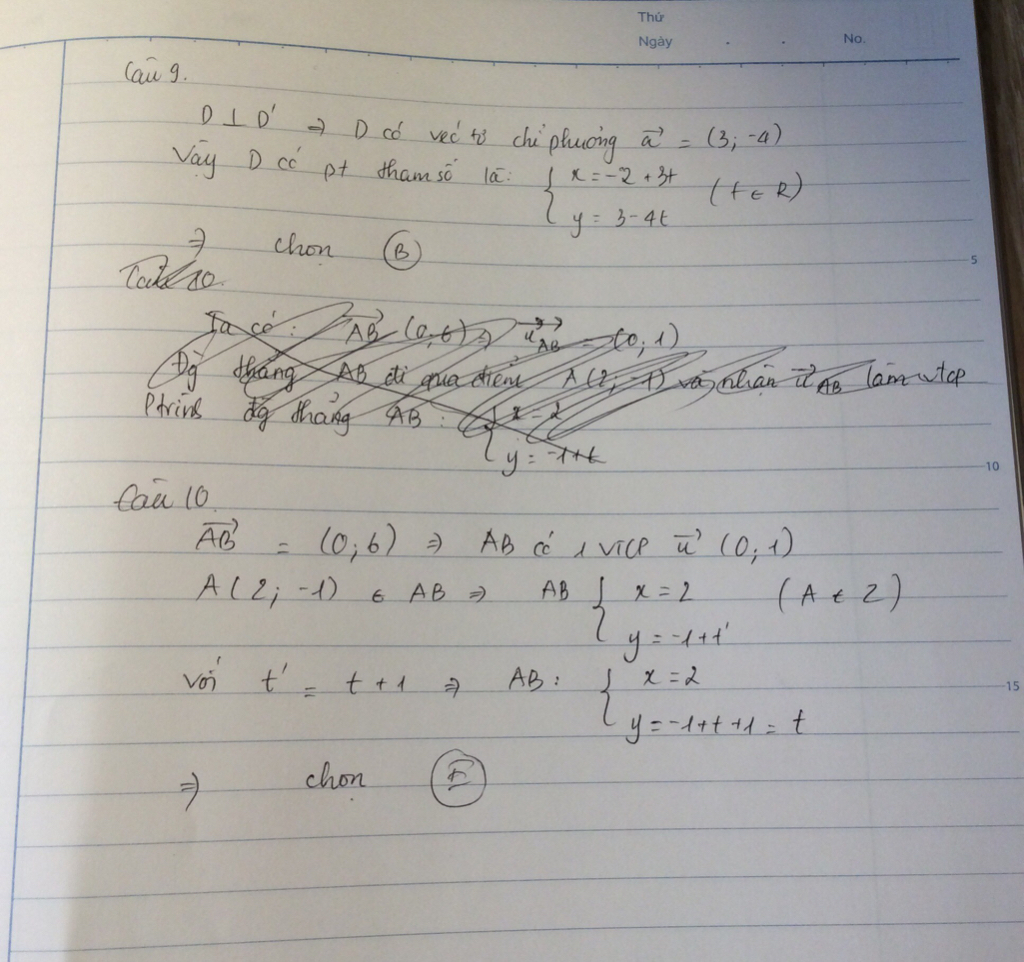 Thứ
Ngày . . No.
Câu 9.
D ⊥ D' ⇒ D có véc tơ chỉ phương a⃗ = (3; -4)
Vậy D có pt tham số là: { x = -2 + 3t
y = 3 - 4t (t ∈ R)
⇒ chọn (B)
5
Câu 10.
Ta có: AB⃗ (0; 6) ⇒ u⃗AB = (0; 1)
Đg thẳng AB đi qua điểm A(2; -1) và nhận u⃗AB làm vtcp
Ptrình đg thẳng AB: { x = 2
y = -1+t
10
Câu 10.
AB⃗ = (0; 6) ⇒ AB có 1 VTCP u⃗ (0; 1)
A(2; -1) ∈ AB ⇒ AB { x = 2
y = -1+t'
với t' = t + 1 ⇒ AB: { x = 2
15
y = -1+t+1 = t
⇒ chọn